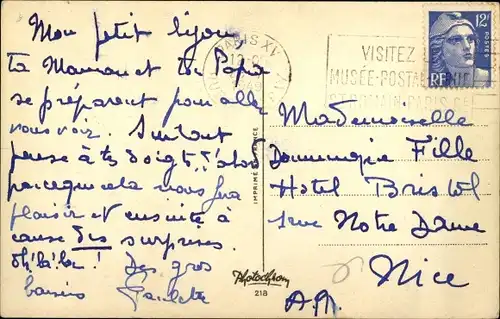 Mon petit bijou,
ta Maman et ton Papa
se préparent pour aller
vous voir. Surtout
pense à tes doigts, d'abord
parceque cela nous fera
plaisir et ensuite à
cause des surprises.
oh! là! là! Des gros
baisers Paulette
PARIS XV
VISITEZ
MUSÉE POSTAL
PARIS
12F
POSTES
RF
Mademoiselle
Dominique Fille
Hotel Bristol
rue Notre Dame
Nice
A.M.
IMPRIMÉ EN FRANCE
Photochrom
218